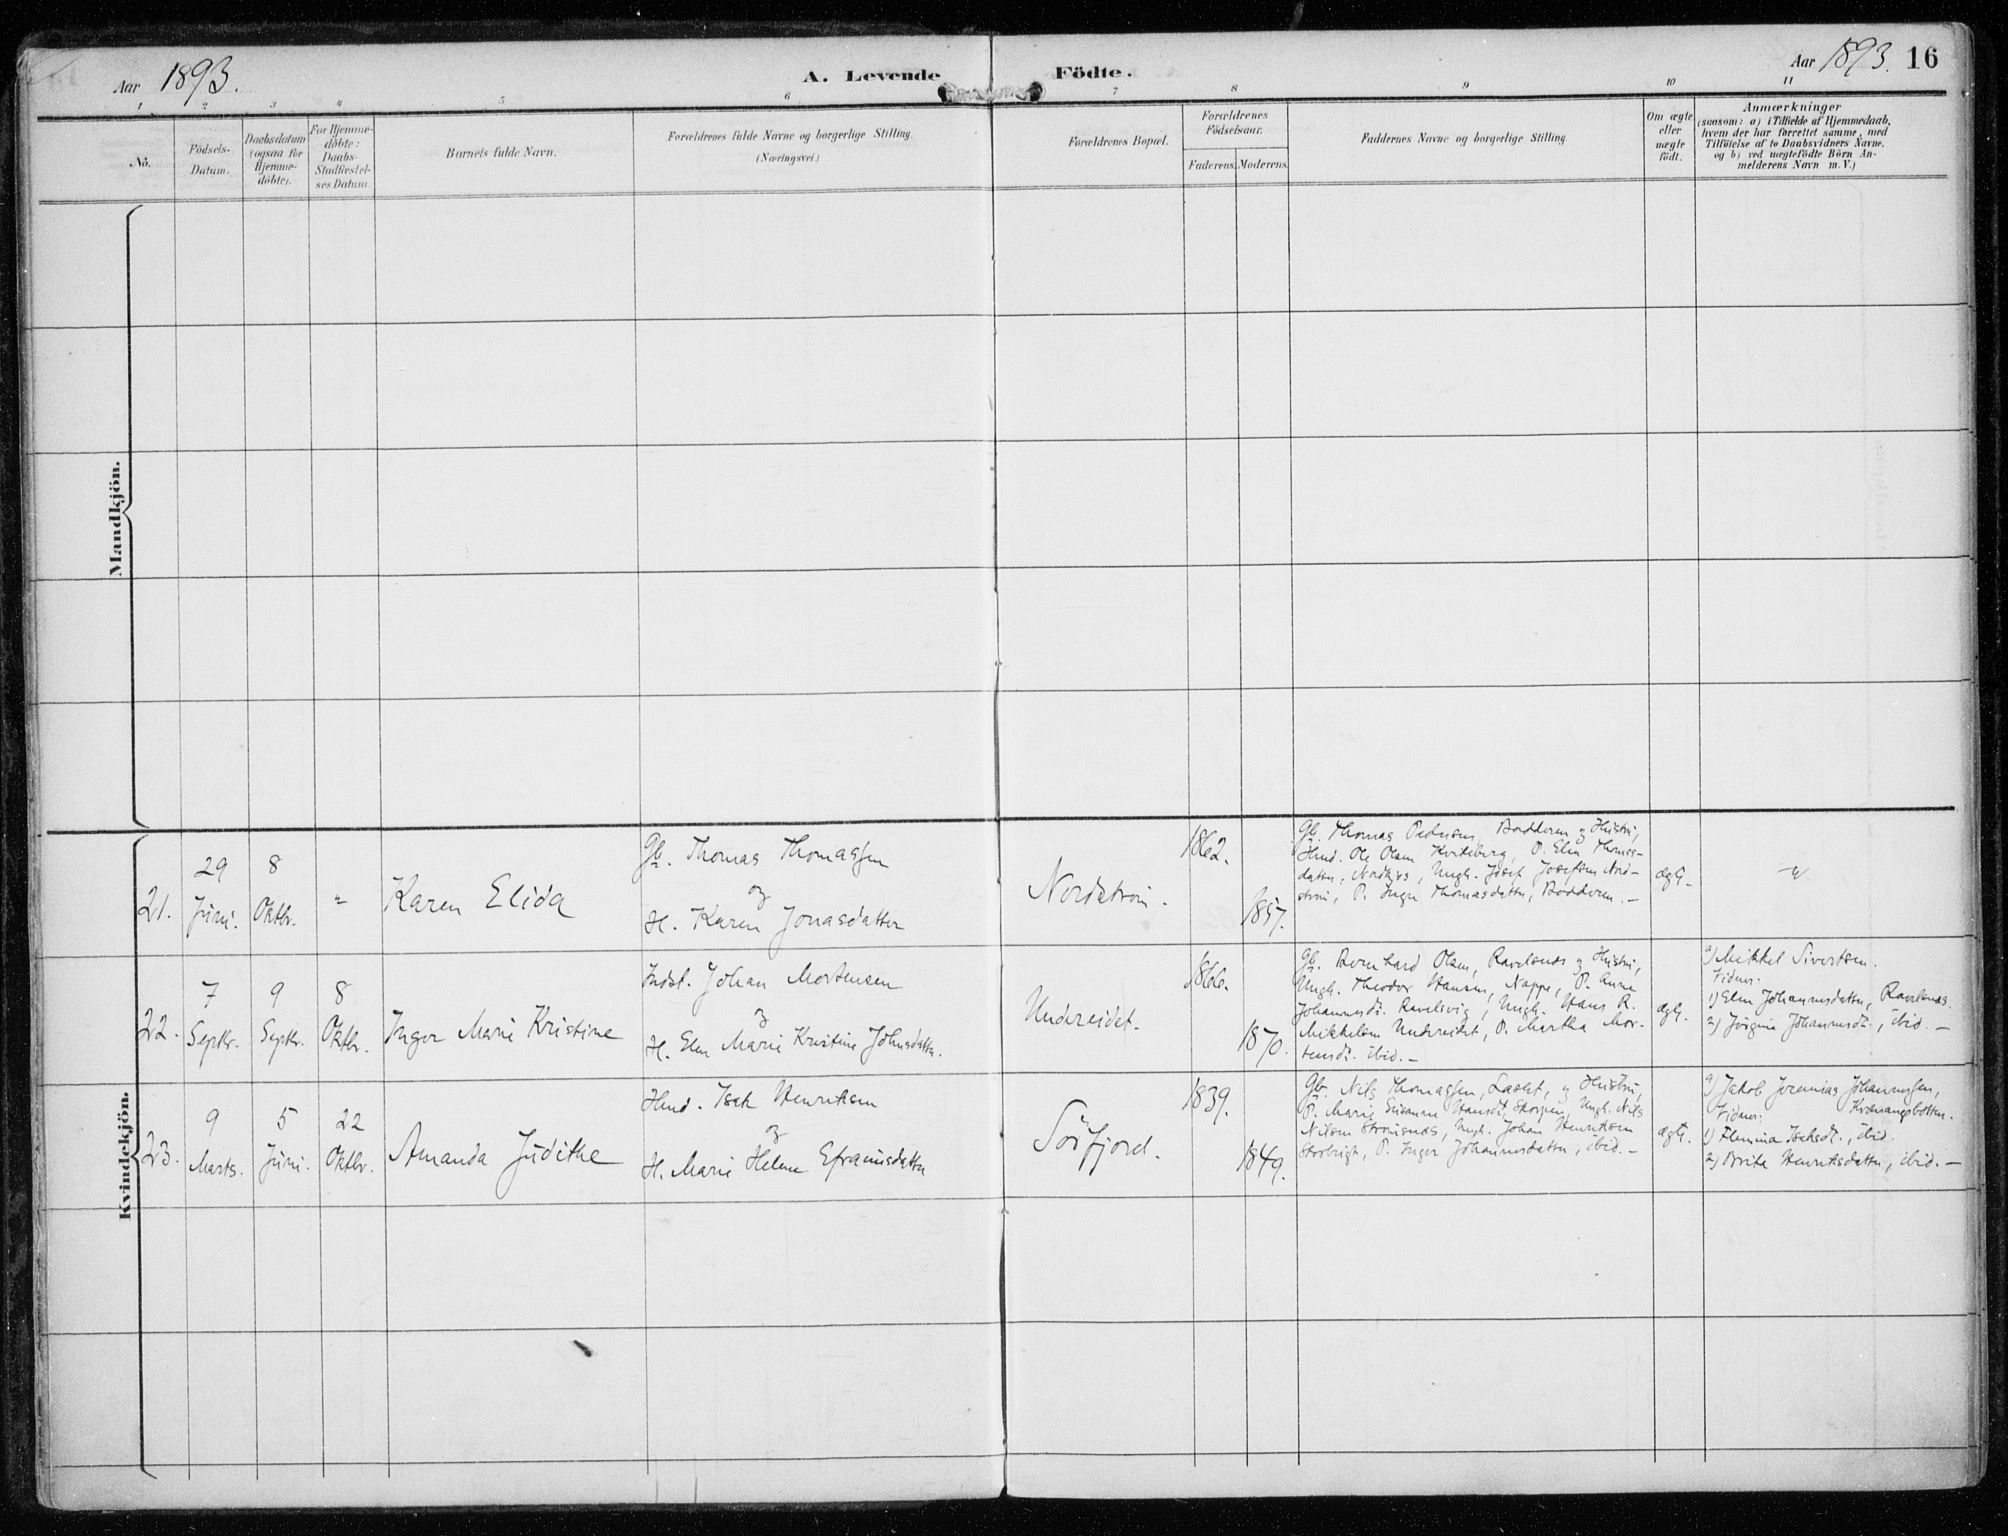 Aar 1893.
A. Levende Födte.
Aar 1893. 16
1 2 3 4 5 6 7 8 9 10 11
No.
Födsels-
Datum.
Daabsdatum
(ogsaa for
Hjemme-
döbte).
For Hjemme-
döbte:
Daabs-
Stadfæstel-
ses Datum
Barnets fulde Navn.
Forældrenes fulde Navne og borgerlige Stilling.
(Næringsvei.)
Forældrenes Bopæl.
Forældrenes
Födselsaar.
Faderens. Moderens.
Faddernes Navne og borgerlige Stilling
Om ægte
eller
uægte
födt.
Anmærkninger
(saasom: a) i Tilfælde af Hjemmedaab,
hvem der har forrettet samme, med
Tilföielse af to Daabsvidners Navne,
og b) ved uægtefödte Börn An-
melderens Navn m. V.)
Mandkjön.
Kvindekjön.
21.
29
Juni.
8
Oktbr.
"
Karen Elida
Gb. Thomas Thomassen
og
H. Karen Jonasdatter
Nordström.
1862.
1857.
Gb. Thomas Pedersen, Badderen og Hustru,
Hmd. Ole Olsen Kviteberg, P. Elen Thomas-
datter, Nordkjos, Ungk. Josef Josefsen Nord-
ström, P. Inger Thomasdatter, Badderen. –
ægt.
"
22.
7
Septbr.
9
Septbr.
8
Oktbr.
Inger Marie Kristine
Indst. Johan Mortensen
og
H. Elen Marie Kristine Johnsdatter.
Undereidet.
1866.
1870.
Gb. Bernhard Olsen, Ravelsnæs og Hustru,
Ungk. Theodor Hansen, Nappe, P. Anne
Johannesdt. Ravelsvig, Ungk. Hans R.
Mikkelsen Undereidet, P. Martha Mor-
tensdt. ibid. –
ægt.
a) Mikkel Sivertsen.
Vidner:
1) Elen Johannesdatter, Ravelsnæs
2) Jörgine Johannesdt., ibid. –
23.
9
Marts.
5
Juni.
22
Oktbr.
Amanda Judithe
Hmd. Isak Henriksen
og
H. Marie Helene Efraimsdatter
Sörfjord.
1839.
1849.
Gb. Nils Thomassen, og Hustru,
P. Marie Susanne Hansdt, Skorpen, Ungk. Nils
Nilsen Strömsnæs, Ungk. Johan Henriksen
Storbugt, P. Inger Johannesdatter, ibid. –
ægt.
a) Jakob Jeremias Johannessen,
Kvænangsbotten.
Vidner:
1) Isaksdt., ibid.
2) Brita Henriksdatter, ibid. –